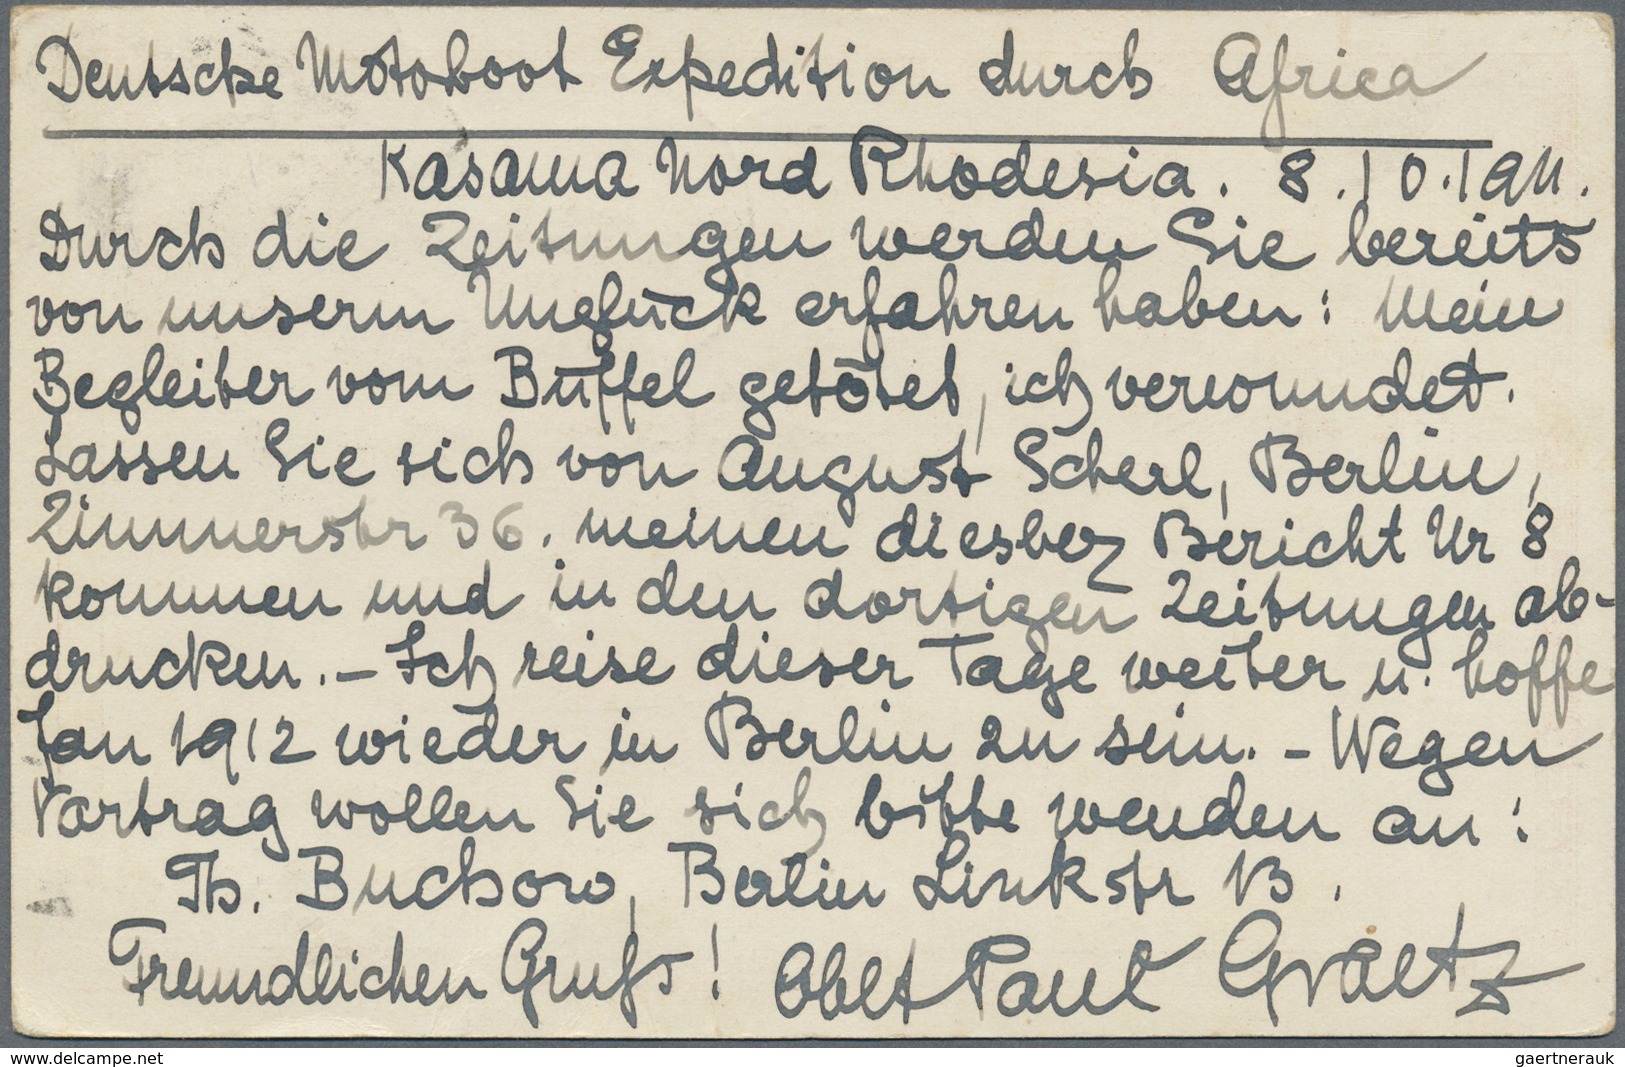 Deutsche Motoboot Expedition durch Africa
Kasama Nord Rhodesia. 8.10.1911.
Durch die Zeitungen werden Sie bereits
von unserm Unglück erfahren haben: Mein
Begleiter vom Büffel getötet, ich verwundet.
Lassen Sie sich von August Scherl, Berlin,
Zimmerstr 36. meinen diesbez Bericht Nr 8
kommen und in den dortigen Zeitungen ab-
drucken. – Ich reise dieser Tage weiter u. hoffe
Jan 1912 wieder in Berlin zu sein. – Wegen
Vortrag wollen Sie sich bitte wenden an:
Th. Buchow, Berlin Linkstr 13.
Freundlichen Gruſs! Oblt Paul Graetz
www.delcampe.net
gaertnerauk